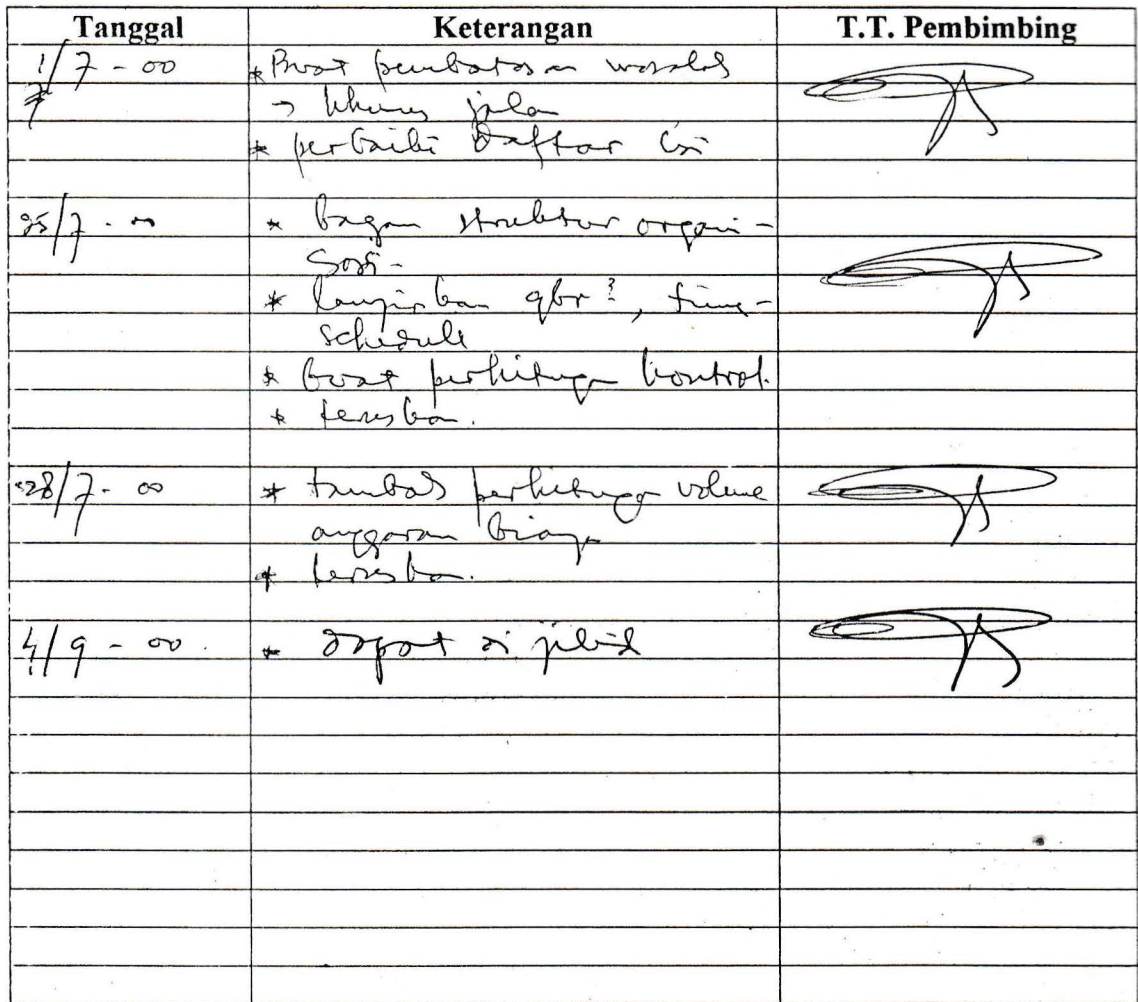 Tanggal Keterangan T.T. Pembimbing
1/7 - 00 * Buat pembatasan masalah
→ khusus jalan
* perbaiki Daftar isi
25/7 - 00 * bagan struktur organi-
sasi -
* lampirkan gbr², time-
schedule
* buat perhitungan kontrol.
* teruskan.
28/7 - 00 * tambah perhitungan volume
anggaran biaya
* teruskan.
4/9 - 00. * dapat di jilid